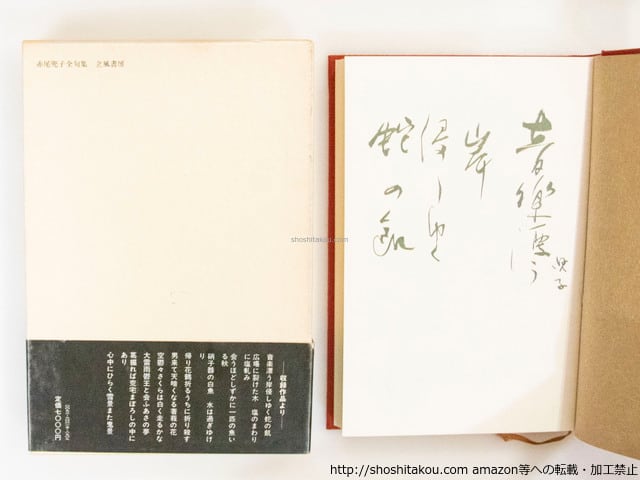 赤尾兜子全句集 立風書房
―収録作品より―
音楽漂う岸侵しゆく蛇の飢
広場に裂けた木 塩のまわり
に塩軋み
会うほどしずかに一匹の魚い
る秋
硝子器の白魚 水は過ぎゆけ
り
帰り花鶴折るうちに折り殺す
男来て天暗くなる著莪の花
空鬱々さくらは白く走るかな
大雷雨鬱王と会ふあさの夢
葛掘れば荒宅まぼろしの中に
あり
心中にひらく雪景また鬼景
定価七〇〇〇円
音楽漂う
岸
侵しゆく
蛇の飢
兜子
shoshitakou.com
http://shoshitakou.com amazon等への転載・加工禁止